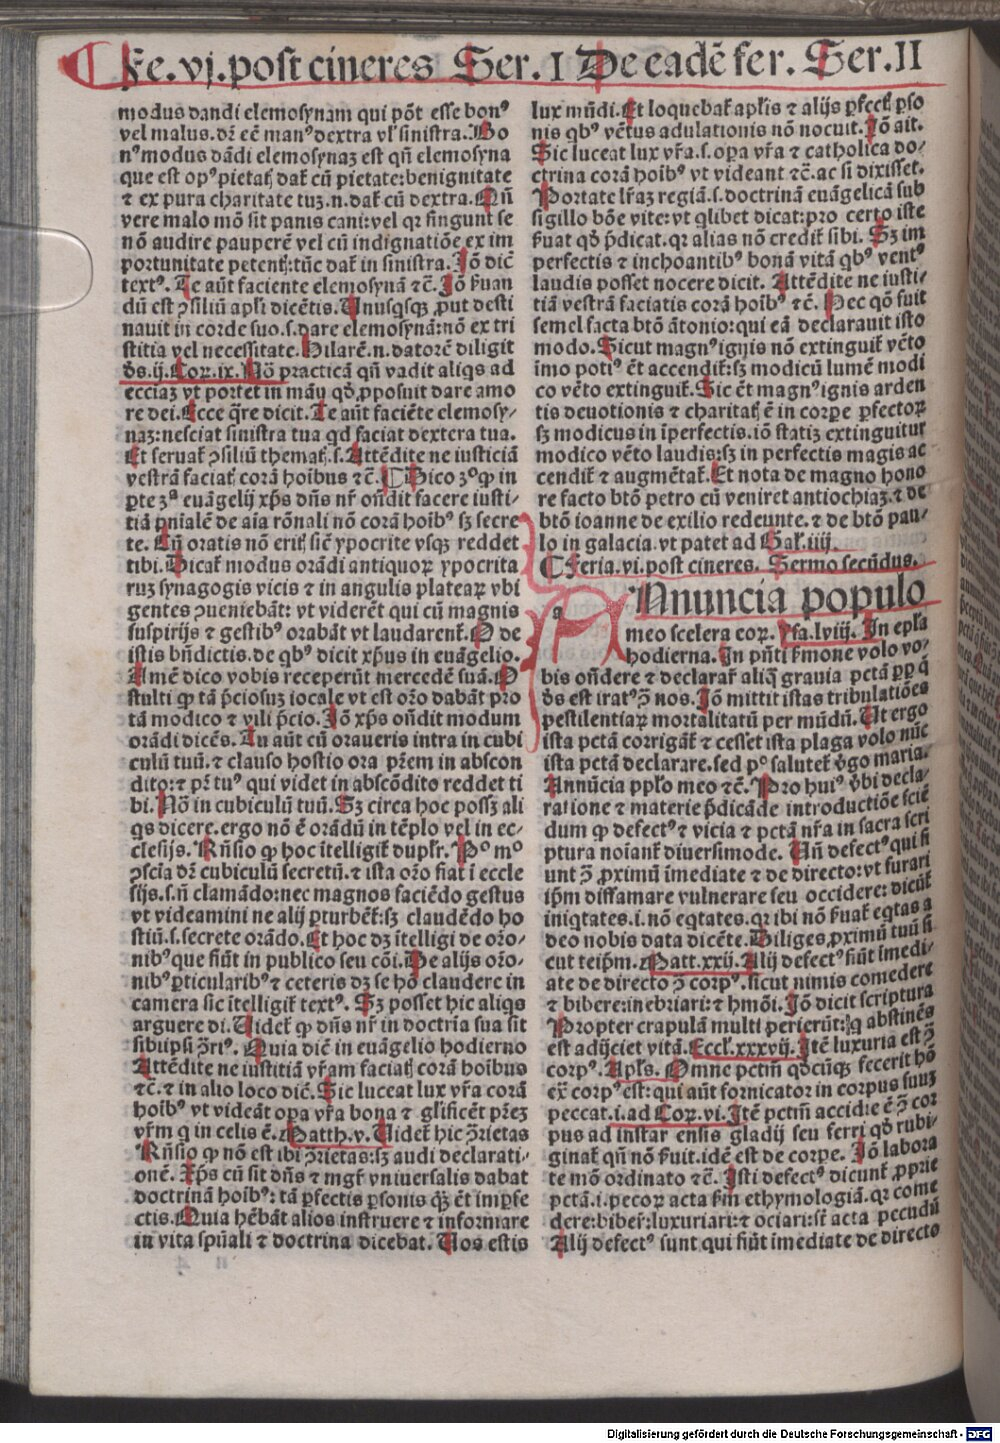 Fe.vj.post cineres Ser.I De eadē fer. Ser.II
modus dandi elemosynam qui pōt esse bonꝰ
vel malus. dr̄ eē manꝰ dextra vl̓ sinistra. Bo
nꝰ modus dādi elemosynaꝫ est qn̄ elemosyna
que est opꝰ pietatꝭ dat̉ cū pietate: benignitate
⁊ ex pura charitate tuꝫ.n.dat̉ cū dextra. Qn̄
vere malo mō sit panis cani: vel qꝛ fingunt se
nō audire pauperē vel cū indignatiōe ex im
portunitate petentꝭ: tūc dat̉ in sinistra. Jō dič
textꝰ. Te aūt faciente elemosynā ⁊č. Jō ẜuan
dū est ɔsiliū apl̓i dicētis. Unusqsqꝫ ꝓut desti
nauit in corde suo.s.dare elemosynā: nō ex tri
stitia vel necessitate. Hilarē.n.datorē diligit
d̓s.ij.Coꝝ.ix. Nō practicā qn̄ vadit aliqs ad
ecciaꝫ vt portet in manu qd̓ ꝓposuit dare amo
re dei. Ecce q̄re dicit. Te aūt faciēte elemosy-
naꝫ: nesciat sinistra tua qd faciat dextera tua.
Et seruat̉ ɔsiliū thematꝭ.s. Attēdite ne iusticiā
vestrā faciatꝭ corā hoibus ⁊č. ¶ Dico 3º ꝙ in
ꝑte 3ª euāgelij xp̄s dn̄s nr̄ oñdit facere iusti-
tiā pnialē de aīa rōnali nō corā hoībꝰ sꝫ secre
te. Cū oratis nō eritꝭ sič ypocrite vsqꝫ reddet
tibi. Dicat̉ modus orādi antiquoꝝ ypocrita
ruꝫ synagogis vicis ⁊ in angulis plateaꝝ vbi
gentes ɔueniebāt: vt viderēt qui cū magnis
suspirijs ⁊ gestibꝰ orabāt vt laudarent̉. O de
istis bn̄dictis. de qbꝰ dicit xp̄us in euāgelio.
Amē dico vobis receperūt mercedē suā. O
stulti ꝙ tā p̄ciosuꝫ iocale vt est orō dabāt pro
tā modico ⁊ vili p̄cio. Jō xp̄s oñdit modum
orādi dicēs. Tu aūt cū oraueris intra in cubi
culū tuū. ⁊ clauso hostio ora pr̄em in abscon
dito: ⁊ pr̄ tuꝰ qui videt in abscōdito reddet ti
bi. Nō in cubiculū tuū. Sꝫ circa hoc possꝫ ali
qs dicere. ergo nō ē orādū in tēplo vel in ec-
clesijs. Rn̄sio ꝙ hoc ītelligit̉ duplr̄. Pº mº
ɔscīa dr̄ cubiculū secretū. ⁊ ista orō fiat ī eccle
sijs.s.n̄ clamādo: nec magnos faciēdo gestus
vt videamini ne alij ꝑturbēt̉: sꝫ claudēdo ho
stiū.s.secrete orādo. Et hoc dꝫ ītelligi de orō-
nibꝰ que fiūt in publico seu cōi. De alijs orō-
nibꝰ ꝑticularibꝰ ⁊ ceteris dꝫ se hō claudere in
camera sic ītelligit̉ textꝰ. Sꝫ posset hic aliqs
arguere di. Uidet̉ ꝙ dn̄s nr̄ in doctrīa sua sit
sibiipsi ɔ̄riꝰ. Quia dič in euāgelio hodierno
Attēdite ne iustitiā vr̄am faciatꝭ corā hoibus
⁊č. ⁊ in alio loco dič. Sic luceat lux vr̄a corā
hoībꝰ vt videāt oꝑa vr̄a bona ⁊ gl̓ificēt pr̄eꝫ
vr̄m q in celis ē. Matth.v. Uidet̉ hic ɔ̄rietas
Rn̄sio ꝙ nō est ibi ɔ̄rietas: sꝫ audi declarati-
onē. Xp̄s cū sit dn̄s ⁊ mgr̄ vniuersalis dabat
doctrinā hoībꝰ: tā ꝑfectis ꝑsonis qꝫ ēt imꝑfe
ctis. Quia hēbāt alios instruere ⁊ informare
in vita spūali ⁊ doctrina dicebat. Uos estis
lux mūdi. Et loquebat̉ apl̓is ⁊ alijs ꝑfectꝭ ꝑso
nis qbꝰ vētus adulationis nō nocuit. Jō ait.
Sic luceat lux vr̄a.s.oꝑa vr̄a ⁊ catholica do-
ctrina corā hoibꝰ vt videant ⁊č. ac si dixisset.
Portate lr̄aꝫ regiā.s.doctrinā euāgelicā sub
sigillo bōe vite: vt qlibet dicat: pro certo iste
ẜuat qd̓ p̄dicat. qꝛ alias nō credit̉ sibi. Sꝫ im
perfectis ⁊ inchoantibꝰ bonā vitā qbꝰ ventꝰ
laudis posset nocere dicit. Attēdite ne iusti-
tiā vestrā faciatis corā hoībꝰ ⁊č. Hec qō fuit
semel facta btō ātonio: qui eā declarauit isto
modo. Sicut magnꝰ ignis nō extinguit̉ vēto
īmo potiꝰ ēt accendit̉: sꝫ modicū lumē modi
co vēto extinguit̉. Sic ēt magnꝰ ignis arden
tis deuotionis ⁊ charitatꝭ ē in corꝑe ꝑfectoꝝ
sꝫ modicus in īperfectis. iō statiꝫ extinguitur
modico vēto laudis: sꝫ in perfectis magis ac
cendit̉ ⁊ augmētat̉. Et nota de magno hono
re facto btō petro cū veniret antiochiaꝫ. ⁊ de
btō ioanne de exilio redeunte. ⁊ de btō pau-
lo in galacia. vt patet ad Gal̓.iiij.
¶ Feria.vi.post cineres. Sermo secūdus.
a
Annuncia populo
meo scelera eoꝝ. Ysa.lviij. In epl̓a
hodierna. In pn̄ti ẜmone volo vo-
bis oñdere ⁊ declarar̄ aliq̄ grauia pctā ꝑꝑ q̄
d̓s est iratꝰ ɔ̄ nos. Jō mittit istas tribulatiōes
pestilentiaꝝ mortalitatū per mūdū. Ut ergo
ista pctā corrigāt̉ ⁊ cesset ista plaga volo nūc
ista pctā declarare. sed pº salutet̉ v̓go maria.
Annūcia pplo meo ⁊č. Pro huiꝰ v̓bi decla-
ratione ⁊ materie p̄dicāde introductiōe sciē
dum ꝙ defectꝰ ⁊ vicia ⁊ pctā nr̄a in sacra scri
ptura noīant̉ diuersimode. Un̄ defectꝰ qui fi
unt ɔ̄ proximū īmediate ⁊ de directo: vt furari
ip̄m diffamare vulnerare seu occidere: dicūt̉
iniqtates.i.nō eqtates. qꝛ ibi nō ẜuat̉ eqtas a
deo nobis data dicēte. Diliges ꝓximū tuū si
cut teip̄m. Matt.xxij. Alij defectꝰ fiūt īmedi-
ate de directo ɔ̄ corpꝰ. sicut nimis comedere
⁊ bibere: inebriari: ⁊ hmōi. Jō dicit scriptura
Propter crapulā multi perierūt: q abstinēs
est adijciet vitā. Eccl̓.xxxvij. Itē luxuria est ɔ̄
corpꝰ. Apl̓s. Omne pctm̄ qd̓cūqꝫ fecerit hō
ex̄ corpꝰ est: qui aūt fornicator in corpus suuꝫ
peccat.i.ad Coꝝ.vi. Itē pctm̄ accidie ē ɔ̄ cor
pus ad instar ensis gladij seu ferri qd̓ rubi-
ginat̉ qn̄ nō ẜuit. idē est de corpe. Jō labora
te mō ordinato ⁊č. Isti defectꝰ dicunt̉ ꝓprie
pctā.i.pecoꝝ acta ẜm ethymologiā. qꝛ come
dere: biber̄: luxuriari: ⁊ ociari: sr̄t acta pecudū
Alij defectꝰ sunt qui fiūt īmediate de directo
Digitalisierung gefördert durch die Deutsche Forschungsgemeinschaft - DFG